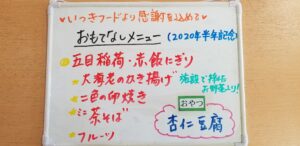 ♥いつきフードより感謝を込めて♥
おもてなしメニュー(2020年半年記念)
◎五目稲荷・赤飯にぎり
★大海老のひき揚げ
★二色の卵焼き
★ミニ茶そば
★フルーツ
おやつ
杏仁豆腐